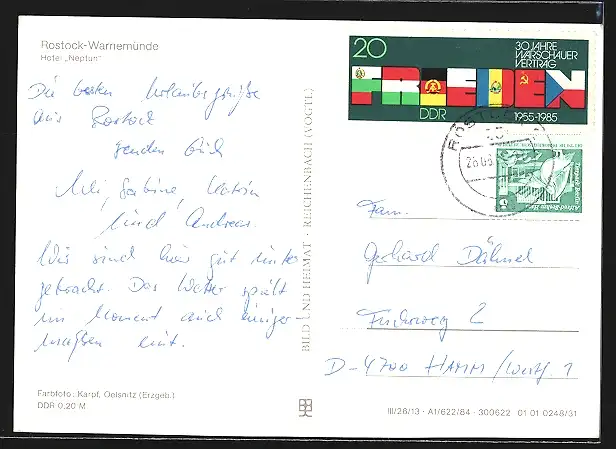 Rostock-Warnemünde
Hotel „Neptun“
Die besten Urlaubsgrüße
aus Rostock
senden Euch
Uli, Sabine, Katrin
und Andreas.
Wir sind hier gut unter
gebracht. Das Wetter spielt
im Moment auch einiger
maßen mit.
Farbfoto: Karpf, Oelsnitz (Erzgeb.)
DDR 0,20 M
BILD UND HEIMAT REICHENBACH (VOGTL)
20
30 JAHRE
WARSCHAUER
VERTRAG
FRIEDEN
DDR
1955-1985
ROSTOCK
Fam.
Gerhard Dähnel
2
D-4700 HAMM/Westf. 1
III/26/13 · A1/622/84 · 300622 01 01 0248/31